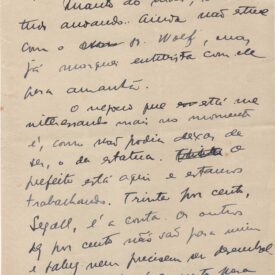 Quanto ao mais,
tudo andando. Ainda não estive
com o Dr. Wolf, mas
já marquei entrevista com ele
para amanhã.
O negocio que está me
interessando mais no momento
é, como não podia deixar de
ser, o da estatua. O
prefeito está aqui e estamos
trabalhando. Trinta por cento,
Segall, é a conta. Os outros
por cento não são para mim
e talvez nem precisem ser
para